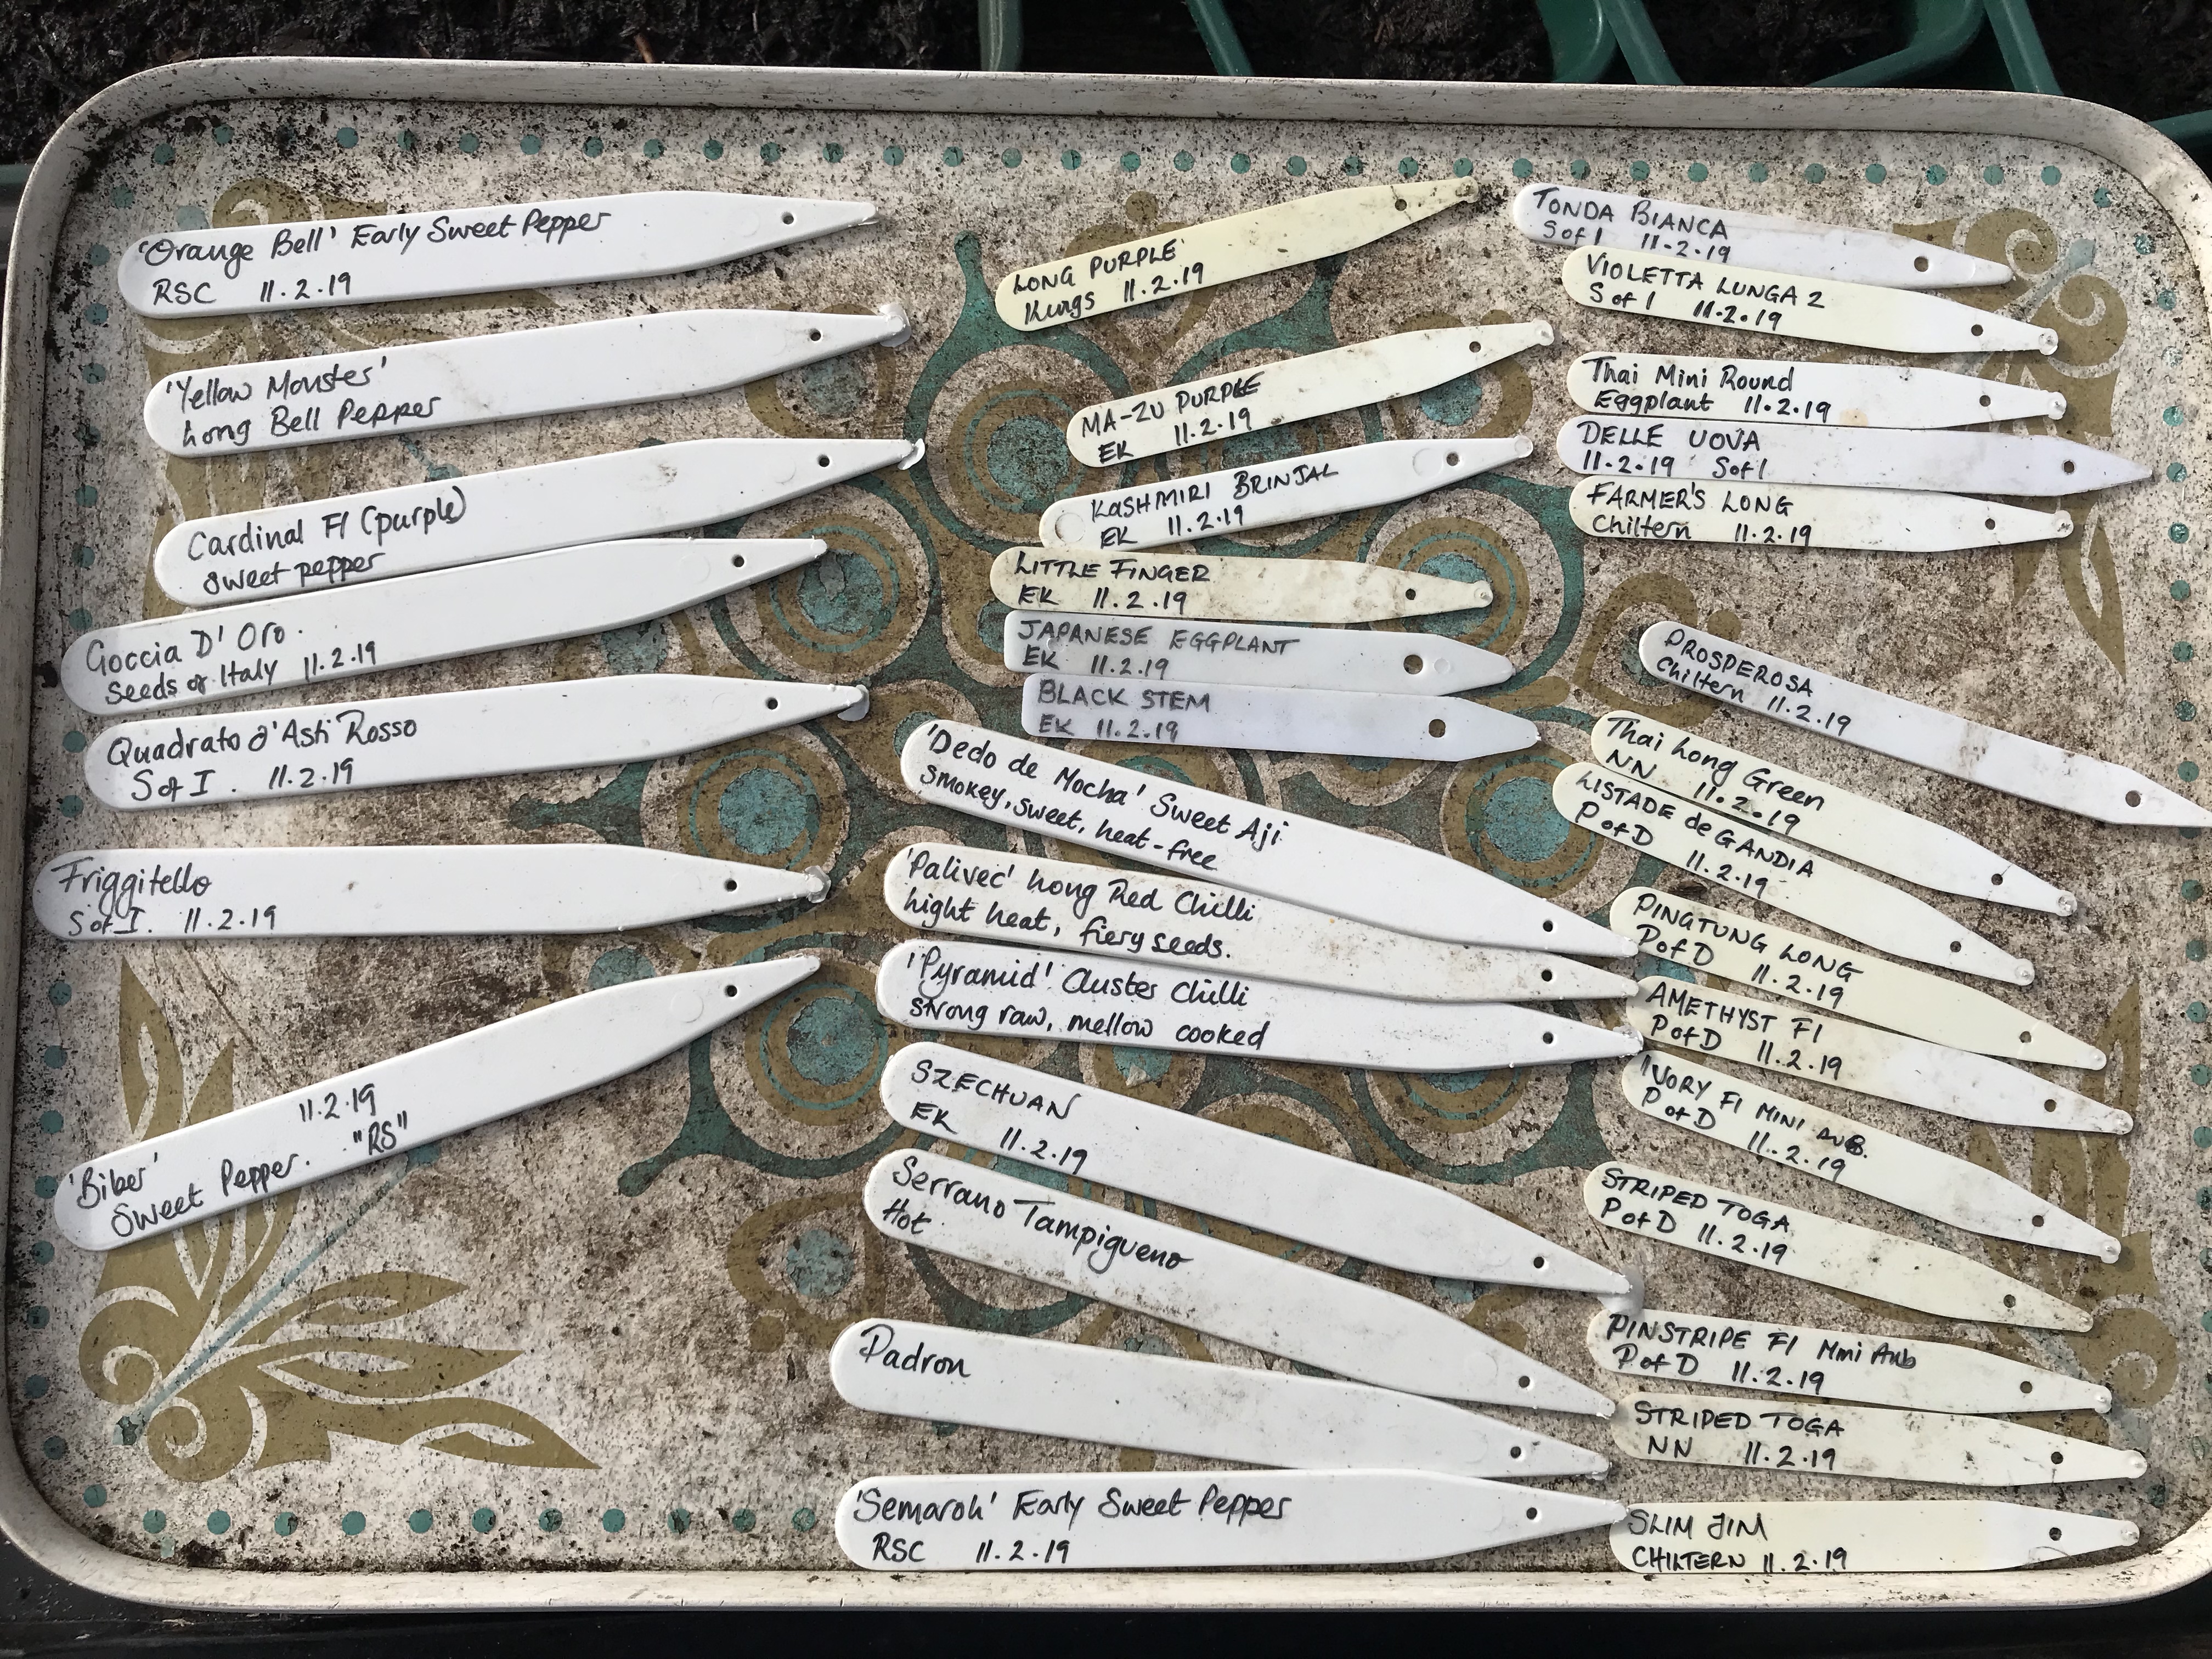 'Orange Bell' Early Sweet Pepper
RSC 11.2.19
'Yellow Monster'
Long Bell Pepper
Cardinal F1 (purple)
sweet pepper
Goccia D' Oro.
Seeds of Italy 11.2.19
Quadrato d'Asti Rosso
S of I. 11.2.19
Friggitello
S of I. 11.2.19
11.2.19
"RS"
'Biber'
Sweet Pepper.
LONG PURPLE
Kings 11.2.19
MA-ZU PURPLE
EK 11.2.19
KASHMIRI BRINJAL
EK 11.2.19
LITTLE FINGER
EK 11.2.19
JAPANESE EGGPLANT
EK 11.2.19
BLACK STEM
EK 11.2.19
'Dedo de Mocha' Sweet Aji
smokey, sweet, heat-free
'Palivec' Long Red Chilli
hight heat, fiery seeds.
'Pyramid' Cluster Chilli
strong raw, mellow cooked
SZECHUAN
EK 11.2.19
Serrano Tampigueno
Hot
Padron
'Semaroh' Early Sweet Pepper
RSC 11.2.19
TONDA BIANCA
S of I 11-2.19
VIOLETTA LUNGA 2
S of I 11.2.19
Thai Mini Round
Eggplant 11.2.19
DELLE UOVA
11.2.19 S of I
FARMER'S LONG
Chiltern 11.2.19
PROSPEROSA
Chiltern 11.2.19
Thai Long Green
NN 11.2.19
LISTADE de GANDIA
P of D 11.2.19
PINGTUNG LONG
P of D 11.2.19
AMETHYST F1
P of D 11.2.19
IVORY F1 MINI AUB.
P of D 11.2.19
STRIPED TOGA
P of D 11.2.19
PINSTRIPE F1 Mini Aub
P of D 11.2.19
STRIPED TOGA
NN 11.2.19
SLIM JIM
CHILTERN 11.2.19